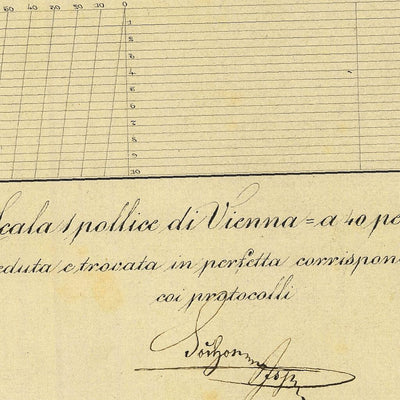 60 50 40 30 20 10 0
1
2
3
4
5
6
7
8
9
10
Scala 1 pollice di Vienna = a 40 pe
eduta e trovata in perfetta corrispon
coi protocolli